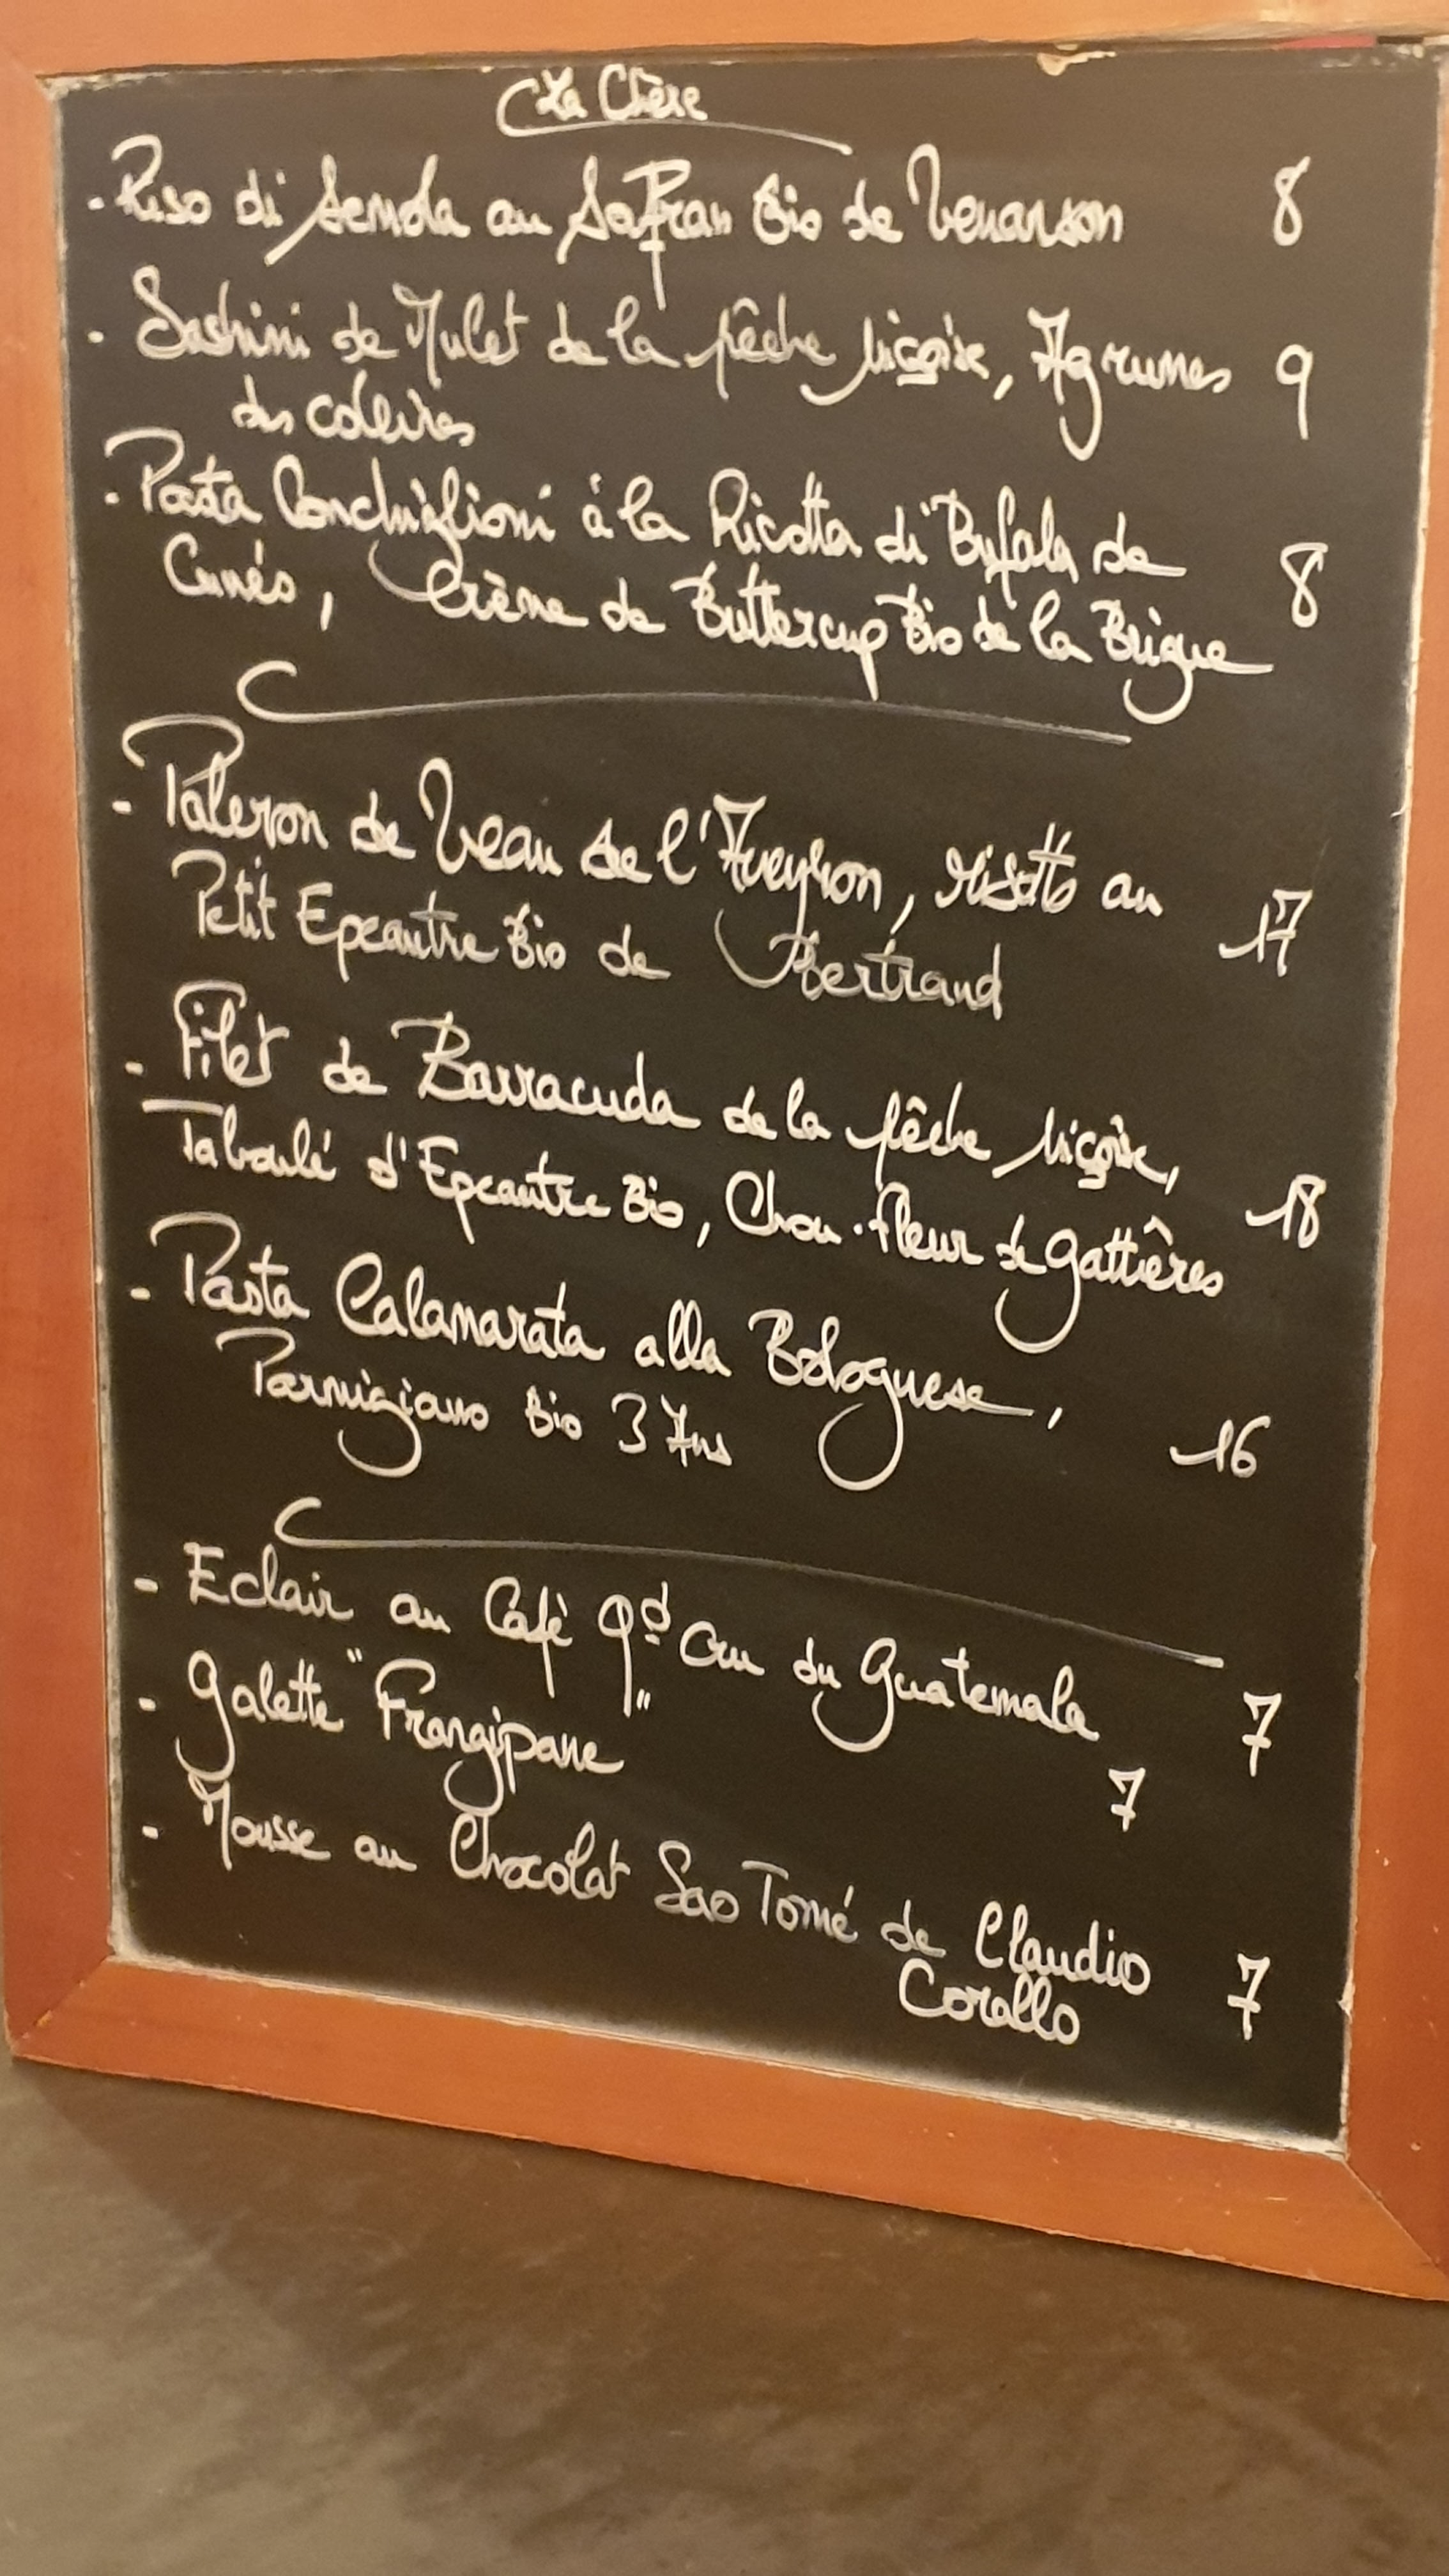 La Chère
- Riso di Semola au Safran Bio de Venanson 8
- Sashimi de Mulet de la pêche Niçoise, Agrumes 9
des Collines
- Pasta Conchiglioni à la Ricotta di Bufala de
Cunéo, Crème de Buttercup Bio de la Brigue 8
- Paleron de Veau de l'Aveyron, risotto au
Petit Epeautre Bio de Bertrand 17
- Filet de Barracuda de la pêche Niçoise,
Taboulé d'Epeautre Bio, Chou-fleur de Gattières 18
- Pasta Calamarata alla Bolognese,
Parmigiano Bio 3 Ans 16
- Eclair au Café Gd Cru du Guatemala 7
- Galette "Frangipane" 7
- Mousse au Chocolat Sao Tomé de Claudio
Corallo 7